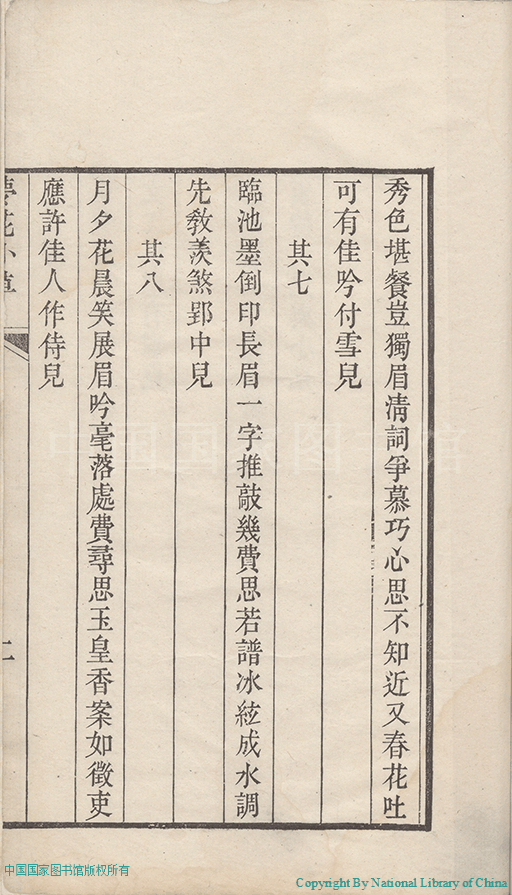 秀色堪餐豈獨眉清詞爭慕巧心思不知近又春花吐
可有佳吟付雪兒
其七
臨池墨倒印長眉一字推敲幾費思若譜冰絃成水調
先教羨煞郢中兒
其八
月夕花晨笑展眉吟毫落處費尋思玉皇香案如徵吏
應許佳人作侍兒
中国国家图书馆
中国国家图书馆版权所有
Copyright By National Library of China